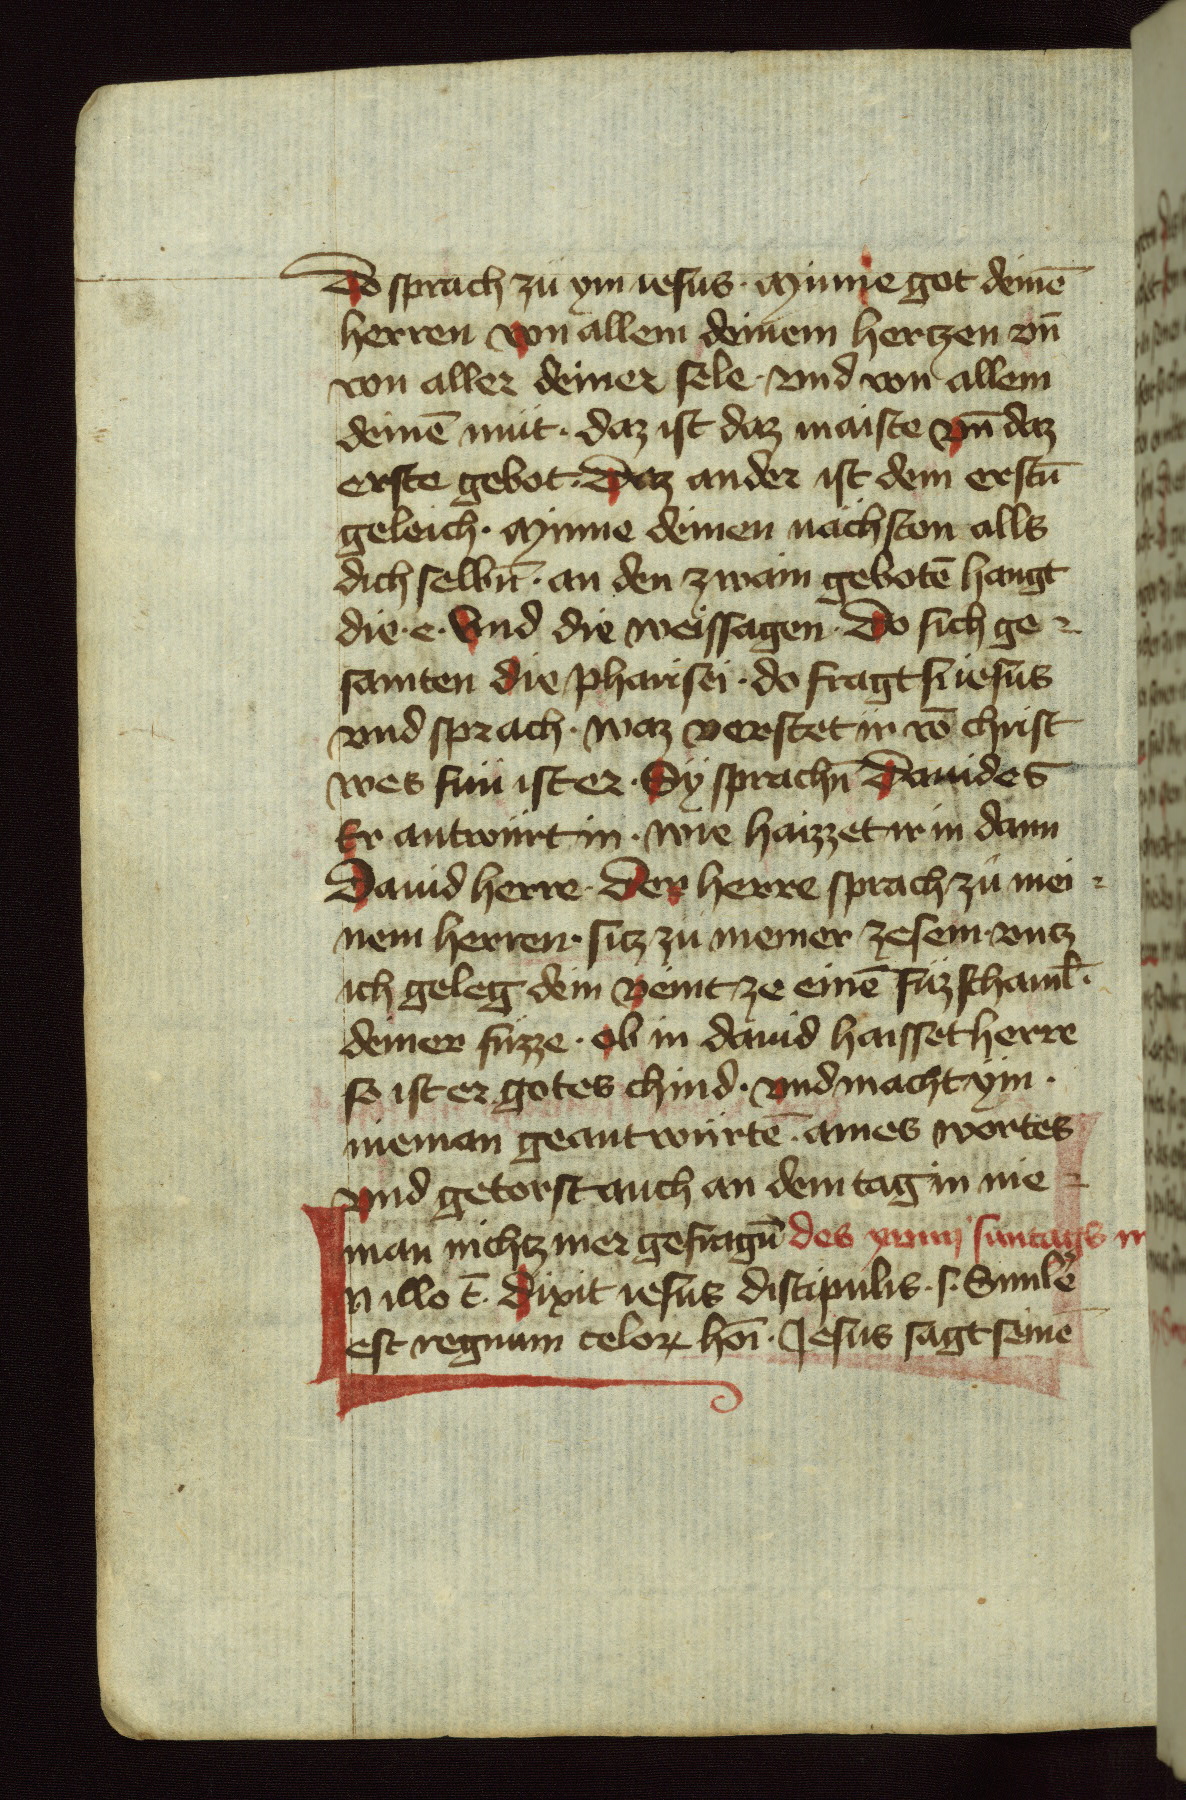 Do sprach zu ym iesus · Mynne got deinē
herren von allem deinem hertzen vn̄
von aller deiner sele · vnd von allem
deinē mut · daz ist daz maiste vn̄ daz
erste gebot · Daz ander ist dem erstn̄
geleich · Mynne deinen nachsten alls
dich selbn̄ · an den zwain gebotē hangt
die · e · Vnd die weissagen · Do sich ge-
samten die pharisei · do fragt si iesus
vnd sprach · waz verstet ir vō christ
wes sun ist er · Sy sprachn̄ Dauides
Er antwurt in · wie haizzet ir in dann
Dauid herre · Der herre sprach zu mei-
nem herren · sitz zu meiner zesem · vntz
ich geleg dein veint ze einē fuzschaml̄ ·
deiner fuzze · ob in dauid haisset herre
so ist er gotes chind · vnd macht ym ·
nieman geantwurtē · aines wortes
vnd getorst auch an dem tag in nie-
man nichtz mer gefragn̄ des xviiij suntags
In illo t̄ · dixit iesus discipulis · s · Simlē
est regnum celoꝝ hōi · Jesus sagt seinē